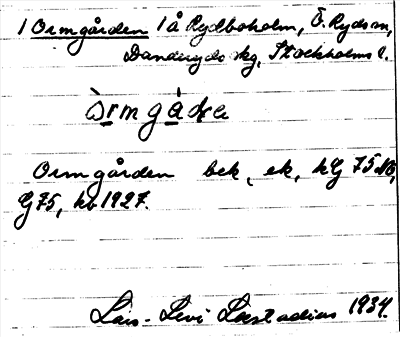 1 Ormgården 1 å Rydboholm, Ö. Ryds sn,
Danderyds skg, Stockholms l.
òrmgàɖa
Ormgården bek, ek, kG 75 NO,
G 75, kb 1927.
Lars-Levi Læstadius 1934.